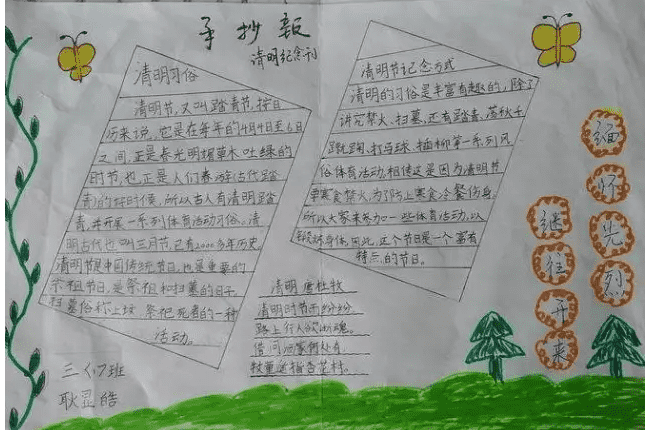 手抄報
清明纪念刊
清明习俗
清明节,又叫踏青节,按日
历来说,它是在每年的4月4日至6日
之间,正是春光明媚草木吐绿的
时节,也正是人们春游古代踏
青)的好时候,所以古人有清明踏
青,并开展一系列体育活动习俗。清
明古代也叫三月节,已有2000多年历史。
清明节是中国传统节日,也是重要的
祭祖节日,是祭祖和扫墓的日子。
扫墓俗称上坟,祭祀死者的一种
活动。
清明节记念方式
清明的习俗是丰富有趣的,除了
讲究禁火、扫墓,还有踏青、荡秋千
蹴鞠、打马球、插柳第一系列风
俗体育活动。相传这是因为清明节
要寒食禁火,为了防止寒食冷餐伤身,
所以大家来参加一些体育活动,以
锻炼身体。因此,这个节日是一个富有
特点的节日。
清明 唐杜牧
清明时节雨纷纷
路上行人欲断魂。
借问酒家何处有
牧童遥指杏花村。
缅怀先烈
继往开来
三〈7班
耿 皓